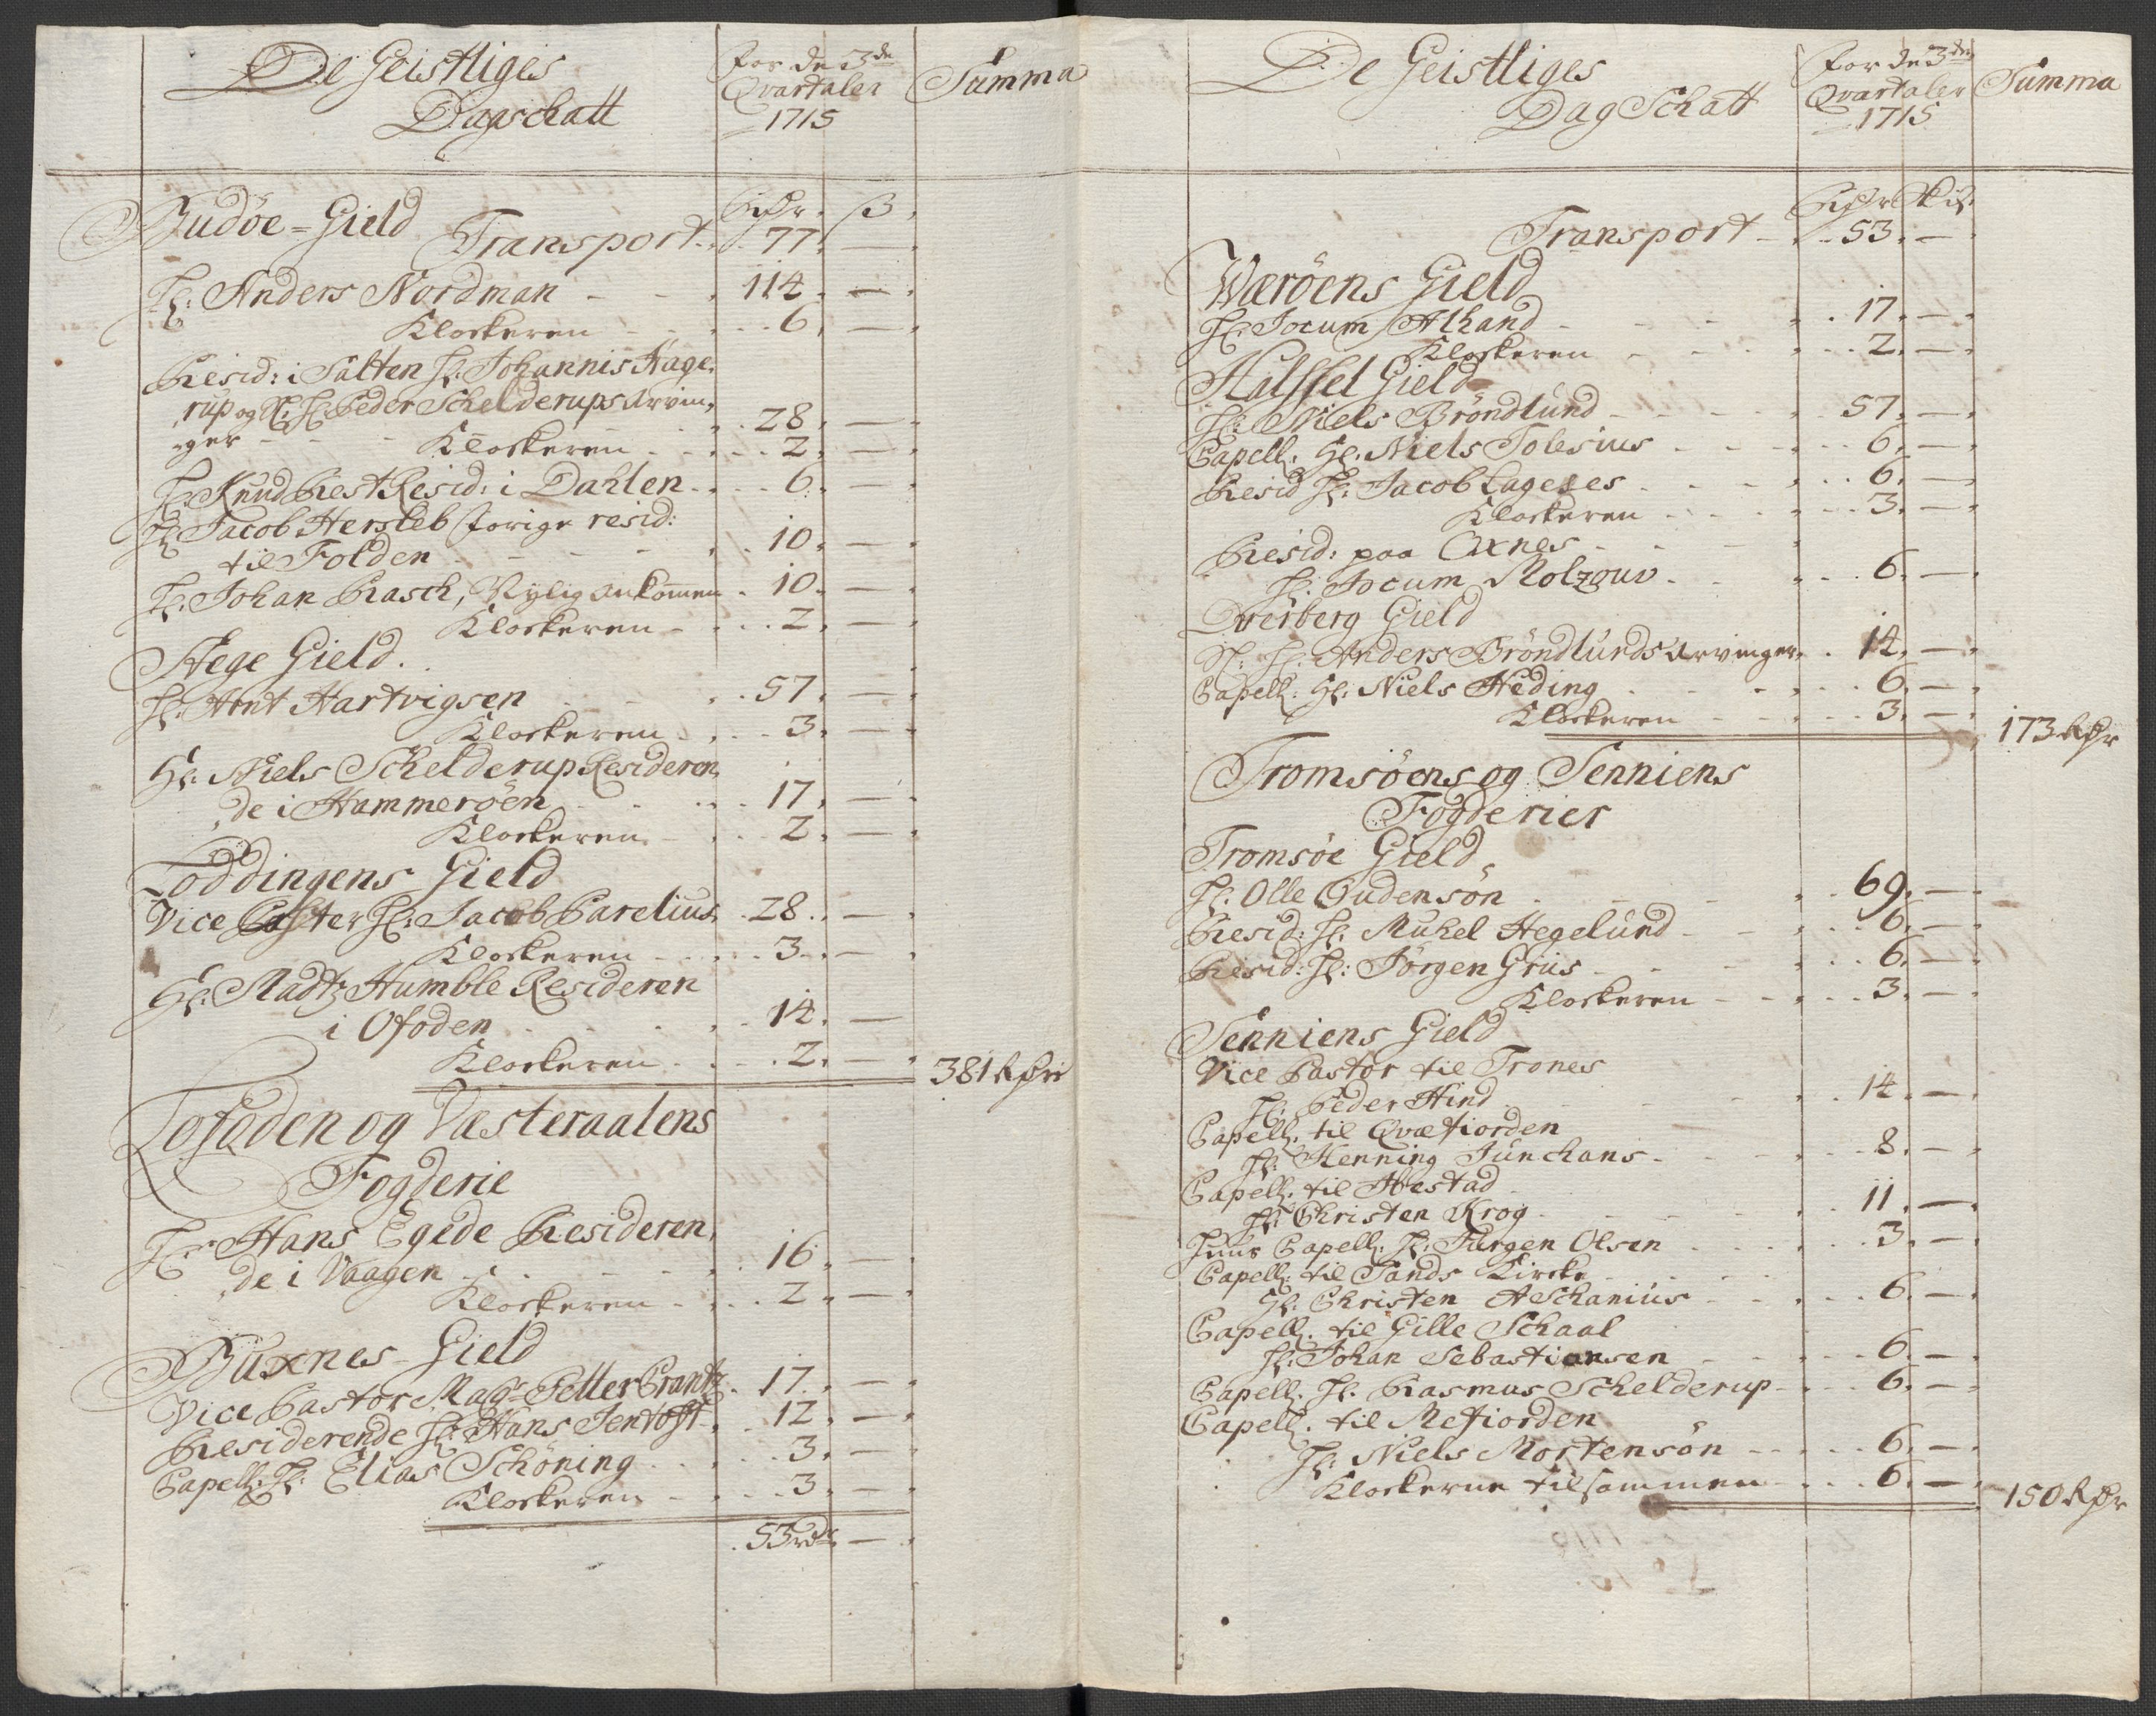 De Geistliges
Dagschatt
For de 3de
Qvartaler
1715
Summa
Budöe = Gield
Rixdr. ß
Transport. 77. —
Hr: Anders Nordman - - 114. —
Klockeren - - 6. —
Resid: i Salten Hr: Johannis Hage,
rup og Sl: Hr: Peder Schelderups Arvin,
ger - - - 28. —
Klockeren - - 2. —
Hr: Knud Piest Resid: i Dahlen - 6. —
Hr: Jacob Hersleb forige resid:
til Folden - - - 10. —
Hr: Johan Rasch, Nylig ankommen. 10. —
Klockeren - 2. —
Stege Gield.
Hr: Arnt Hartvigsen - - 57. —
Klockeren - 3. —
Hr: Niels Schelderup Resideren,
de i Hammerøen - - 17. —
Klockeren - 2. —
Loddingens Gield
Vice Paster Hr: Jacob Parelius. 28. —
Klockeren - - 3. —
Hr: Madtz Humble Resideren
i Ofoden - - 14. —
Klockeren - - 2. —
381 Rdr
Lofoden og Vasteraalens
Fogderie
Hr: Hans Egede Resideren,
de i Vaagen - - 16. —
Klockeren - 2. —
Buxnes Gield
Vice Pastor Magr Petter Crantz. 17. —
Residerende Hr: Hans Jentoft. 12. —
Capell: Hr: Elias Schöning - 3. —
Klockeren - - 3. —
53 rdr —
De Geistliges
Dag Schatt
For de 3de
Qvartaler
1715
Summa
Rixdr Skis.
Transport - 53. —
Wæröens Gield
Hr: Jocum Alhand - - 17. —
Klockeren - - 2. —
Halssel Gield
Hr: Niels Bröndlund - - 57. —
Capell: Hr: Niels Tolesius - - 6. —
Resid Hr: Jacob Lageses - - 6. —
Klockeren - - 3. —
Resid: paa Oxnes - -
Hr: Jocum Molzouv - - 6. —
Dverberg Gield
Sl: Hr: Anders Bröndlunds Arvinger. 14. —
Capell: Hr: Niels Heding - - 6. —
Klockeren - - 3. —
173 Rdr
Tromsöens og Senniens
Fogderier
Tromsöe Gield
Hr: Olle Gudensön - - 69. —
Resid: Hr: Mukel Hegelund - - 6. —
Resid: Hr: Jörgen Griis - - 6. —
Klockeren - - 3. —
Senniens Gield
Vice Pastor til Trones
Hr: Peder Hind - - 14. —
Capell: til Qvæfiorden
Hr: Henning Junchans - - 8. —
Capell: til Ibestad
Hr: Christen Krog - - 11. —
Capell: Hr: Jürgen Olsen - - 3. —
Capell: til Sands Kircke
Hr: Christen Aschanius - - 6. —
Capell: til Gille Schaal
Hr: Johan Sebastiansen - - 6. —
Capell: Hr: Rasmus Schelderup - 6. —
Capell: til Mefiorden
Hr: Niels Mortensön - - 6. —
Klockerne tilsammen - - 6. —
150 Rdr